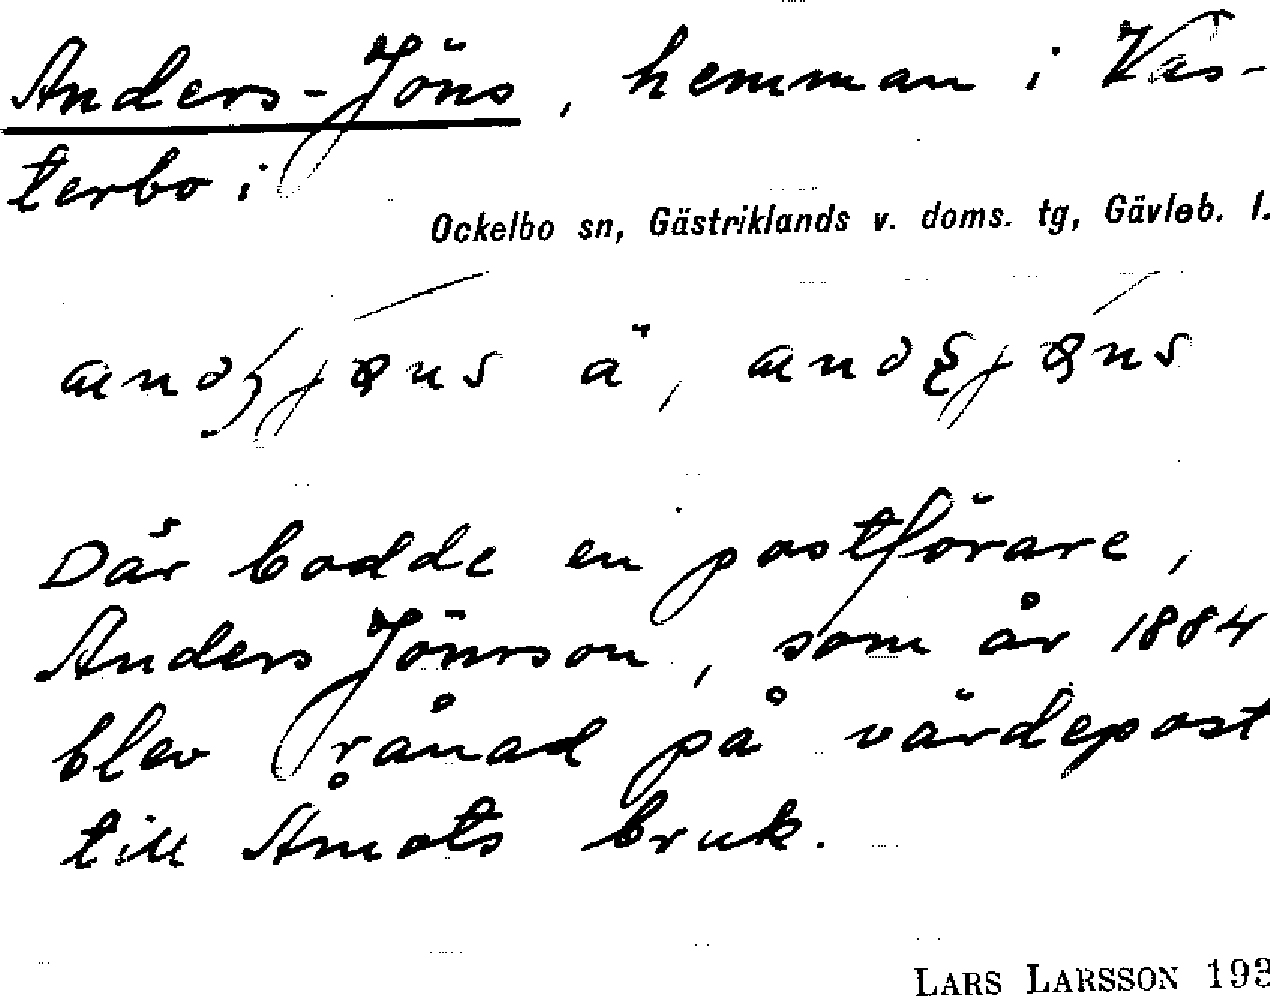 Anders-Jöns, hemman i Väs-
terbo i
Ockelbo sn, Gästriklands v. doms. tg, Gävleb. l.
ä,
Där bodde en postförare,
Anders Jönsson, som år 1884
blev rånad på värdepost
till Åmots bruk.
LARS LARSSON 193